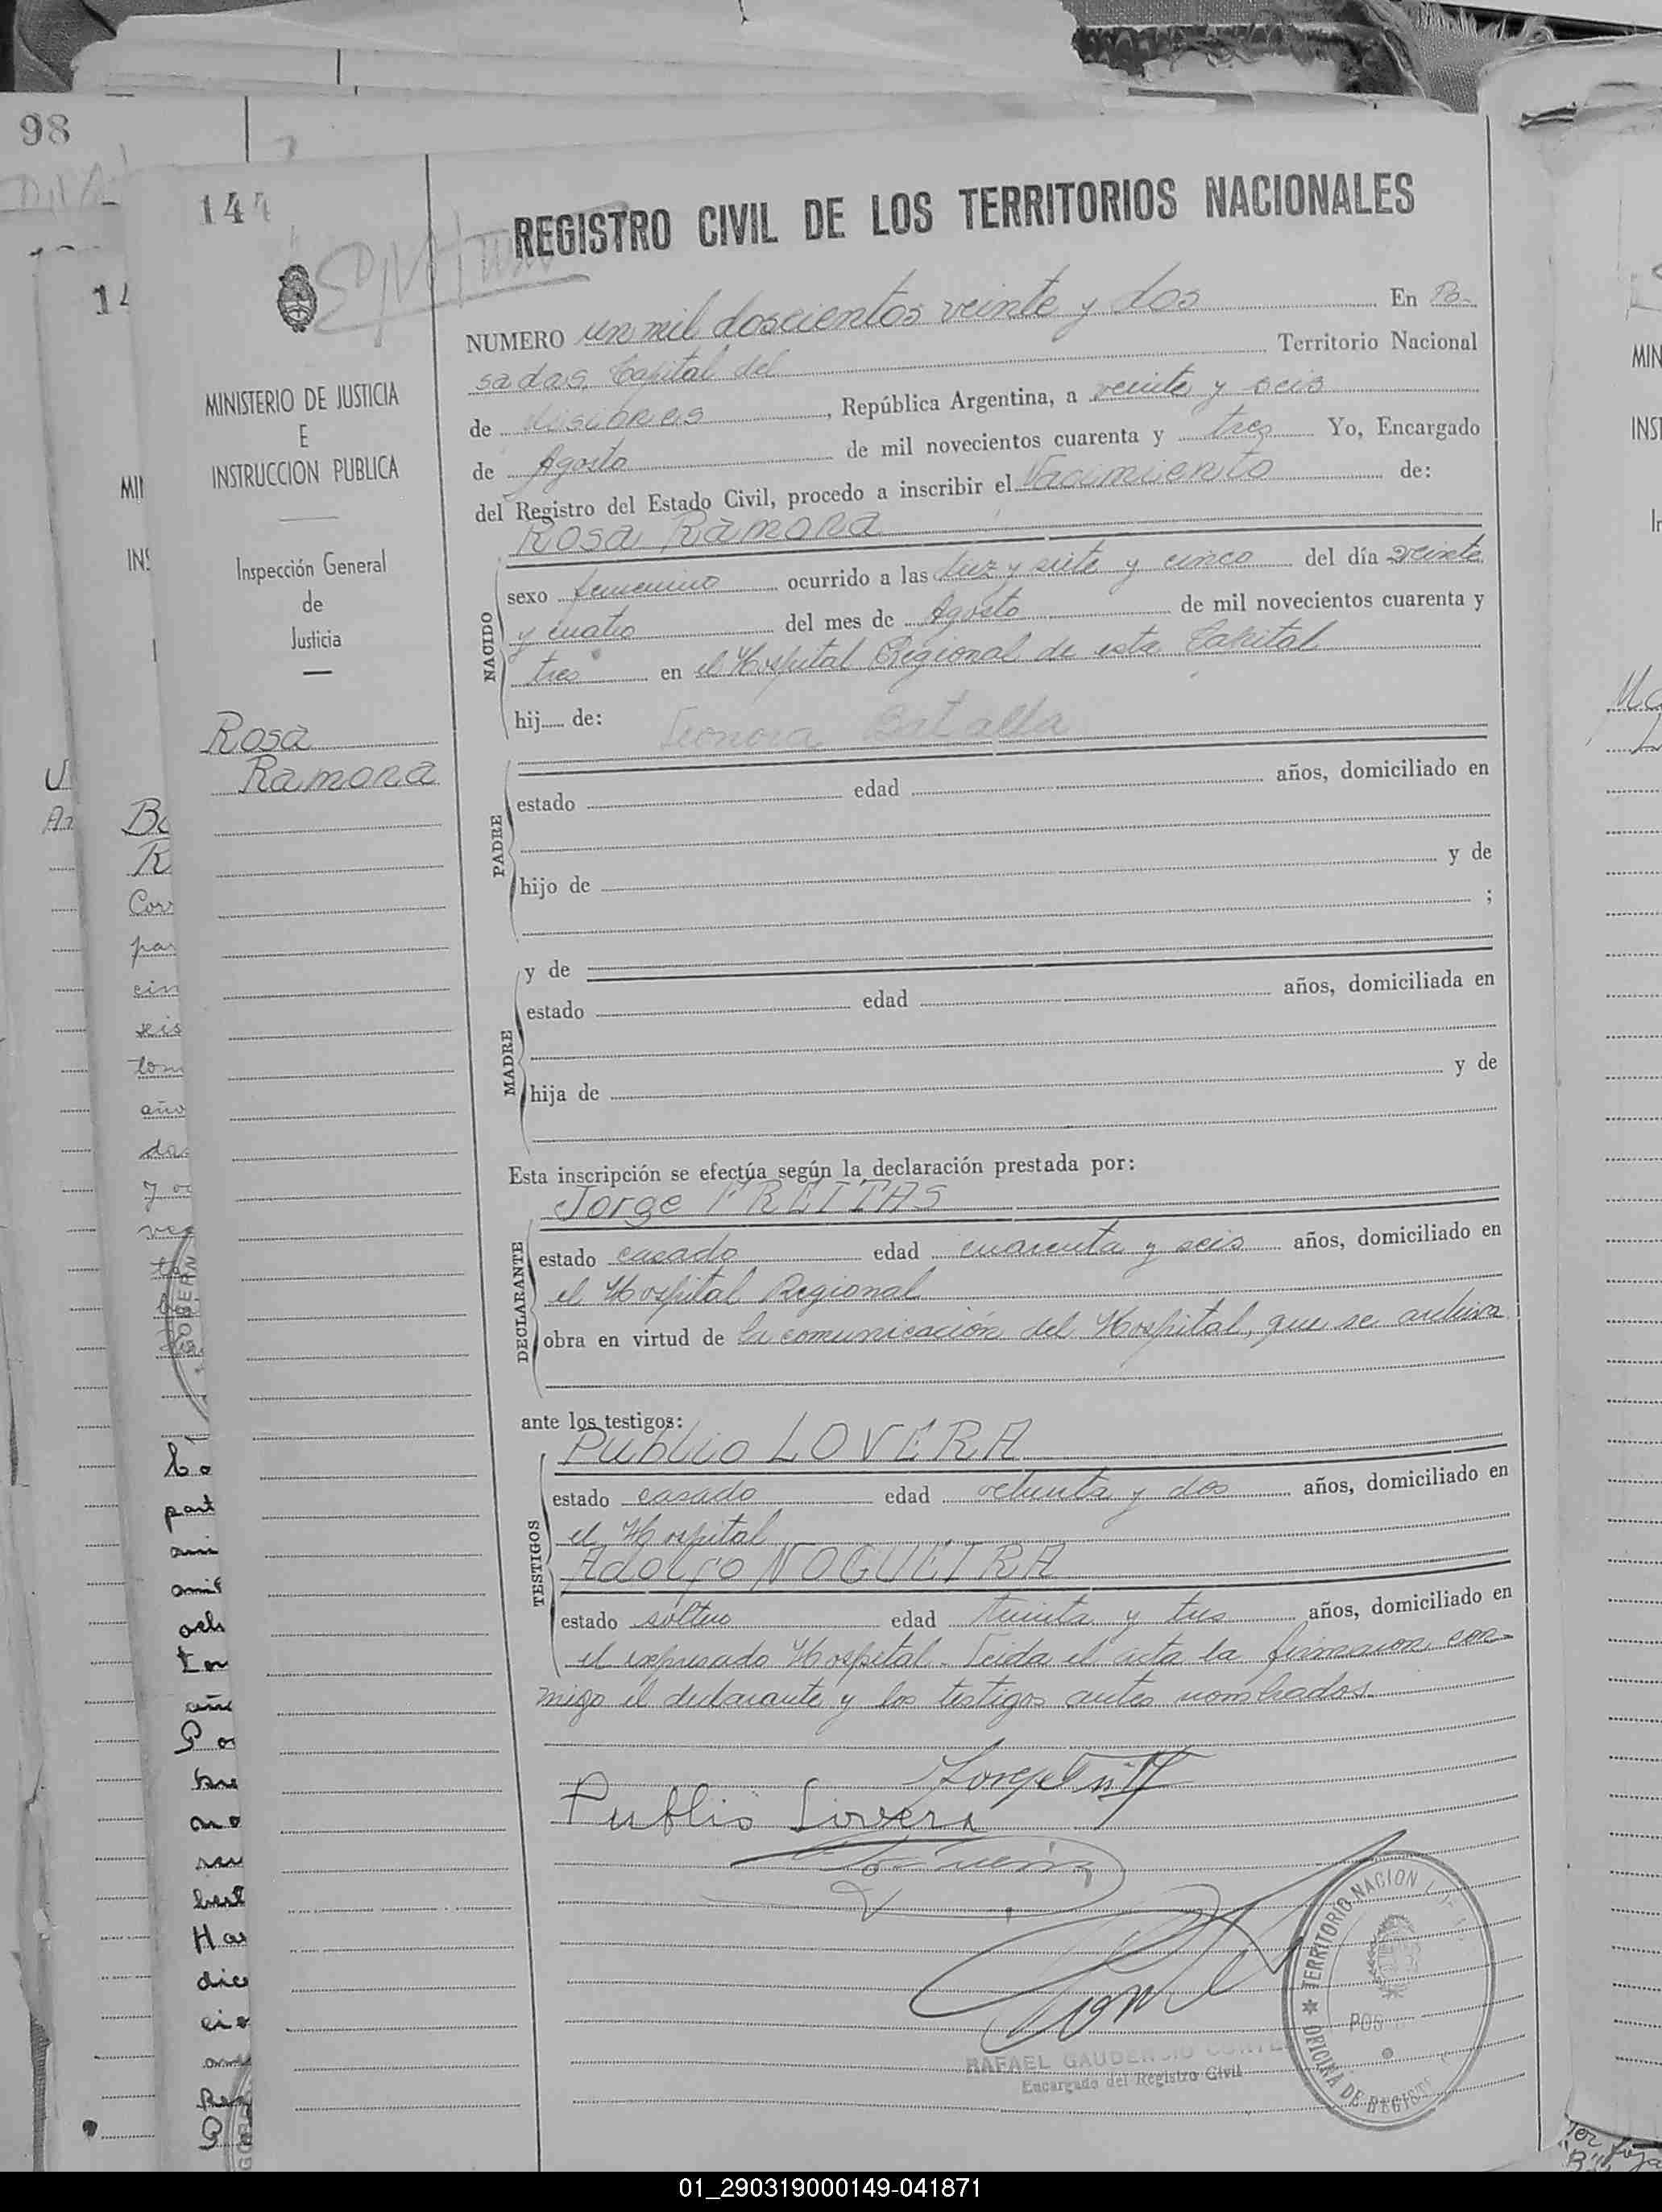 98
144
REGISTRO CIVIL DE LOS TERRITORIOS NACIONALES
NUMERO un mil doscientos veinte y dos En Po-
sadas, Capital del Territorio Nacional
de Misiones, República Argentina, a veinte y seis
de Agosto de mil novecientos cuarenta y tres Yo, Encargado
del Registro del Estado Civil, procedo a inscribir el Nacimiento de:
Rosa Ramona
NACIDO
sexo femenino ocurrido a las diez y siete y cinco del día veinte
y cuatro del mes de Agosto de mil novecientos cuarenta y
tres en el Hospital Regional de esta Capital
hij de: Leonora Batalla
PADRE
estado edad años, domiciliado en
hijo de y de
;
MADRE
y de
estado edad años, domiciliada en
hija de y de
Esta inscripción se efectúa según la declaración prestada por:
Jorge FREITAS
DECLARANTE
estado casado edad cuarenta y seis años, domiciliado en
el Hospital Regional
obra en virtud de la comunicación del Hospital, que se archiva
ante los testigos:
Publio LOVERA
TESTIGOS
estado casado edad y dos años, domiciliado en
el Hospital
Adolfo NOGUEIRA
estado soltero edad treinta y tres años, domiciliado en
el expresado Hospital. Leida el acta la firmaron con-
migo el declarante y los testigos antes nombrados.
Publio Lovera
RAFAEL GAUDENCIO CORTE
Encargado del Registro Civil
TERRITORIO NACION
POS
OFICINA DE REGIST
MINISTERIO DE JUSTICIA
E
INSTRUCCION PUBLICA
Inspección General
de
Justicia
Rosa
Ramona
14
MIN
INS
Cor
par
cin
seis
tom
año
Co
part
año
Har
dic
MIN
INST
01_290319000149-041871